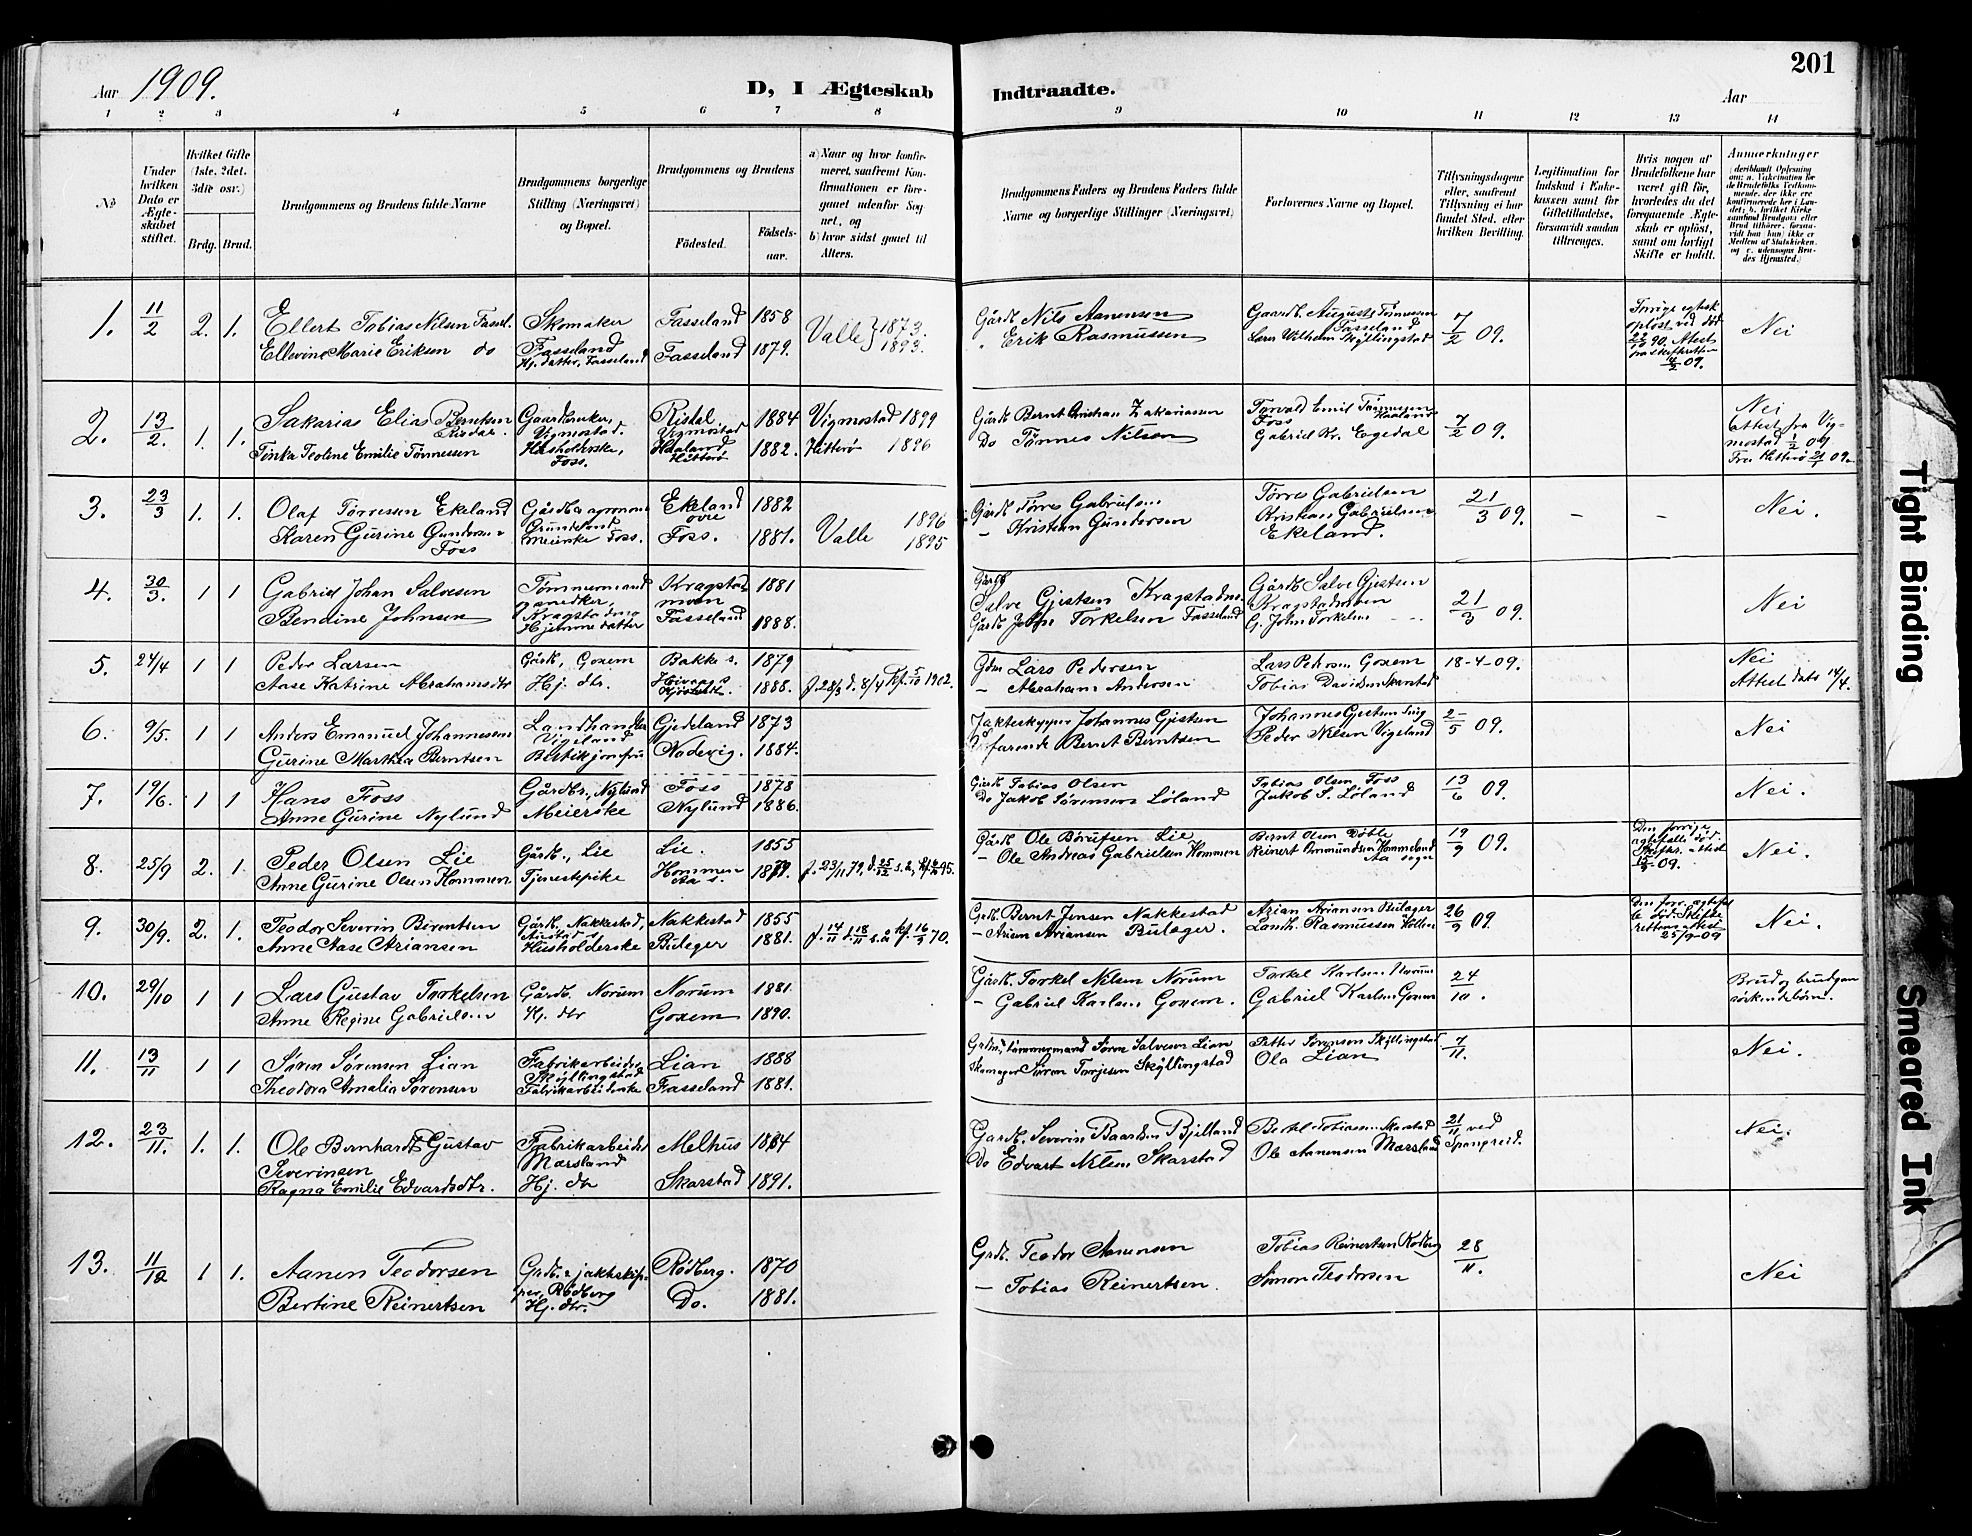 201
Aar 1909.
D, I Ægteskab Indtraadte.
Aar
1 2 3 4 5 6 7 8 9 10 11 12 13 14
No
Under hvilken Dato er Ægteskabet stiftet.
Hvilket Gifte (1ste, 2det, 3die osv.)
Brdg. Brud.
Brudgommens og Brudens fulde Navne
Brudgommens borgerlige Stilling (Næringsvei) og Bopæl.
Brudgommens og Brudens
Fødested.
Fødselsaar.
a) Naar og hvor konfirmeret, saafremt Konfirmationen er foregaaet udenfor Sognet, og
b) hvor sidst gaaet til Alters.
Brudgommens Faders og Brudens Faders fulde Navne og borgerlige Stillinger (Næringsvei)
Forlovernes Navne og Bopæl.
Tillysningsdagene eller, saafremt Tillysning ei har fundet Sted, efter hvilken Bevilling.
Legitimation for Indskud i Enkekassen samt for Giftetilladelse, forsaavidt saadan tiltrænges.
Hvis nogen af Brudefolkene har været gift før, hvorledes da det foregaaende Ægteskab er opløst, samt om lovligt Skifte er holdt.
Anmerkninger
1. 11/2 2. 1. Ellert Tobias Nilsen Fassel. Skomaker Fasseland 1858 Valle 1873. Gårdb. Nils Aanensen Gaardb. Auguste Tønnessen Fasseland 7/2 09. Nei
Ellevine Marie Eriksen do Fasseland Hj. datter, Fasseland Fasseland 1879. 1893. " Erik Rasmussen Lærer Wilhelm Skyllingstad
2. 13/2. 1. 1. Sakarias Elias Berntsen Risdal Gaardbruker, Vigmostad. Risdal Vigmostad 1884 Vigmostad 1899 Gårdb. Bernt Kristian Zakariassen Torvald Emil Tønnessen Haaland Foss 7/2 09. Nei Attest fra Vigmostad 1/2 09
Tinka Teoline Emilie Tønnessen Husholderske, Foss. Haaland Hitterø 1882. Hitterø 1896 Do Tønnes Nilsen Gabriel Kr. Egedal Fra Hitterø 21/1 09.
3. 23/3 1. 1. Olaf Tørresen Ekeland Ekeland øvre 1882 Valle 1896 Gårdb Tørres Gabrielsen Tørres Gabrielsen 21/3 09. - - Nei.
Karen Gurine Gundersen Foss Meierske Foss. Foss. 1881. 1895 - Kristian Gundersen Kristian Gabrielsen Ekeland.
4. 30/3. 1 1 Gabriel Johan Salvesen Tømmermand 1881 Gårdb Salve Gjetsen Gårdb. Salve Gjetsen 21/3 09. Nei
Bendine Johnsen Hjemme datter Fasseland 1888. Gårdb John Torkelsen Fasseland G. John Torkelsen
5. 24/4 1 1 Peder Larsen Gårdb, Goxem Bakke s. 1879 Gdm Lars Pedersen Lars Pedersen Goxem 18-4-09. Nei
Aase Katrine Abrahamsdtr Hj. dtr. 1888. - Abraham Andersen Tobias Davidsen Skarstad Attest dato 14/4.
6. 9/5. 1 1 Anders Emanuel Johannessen Landhandler Vigeland Gjedeland 1873 Jakteskipper Johannes Gjetsen 2/5 09. Nei
Gurine Marthea Berntsen Butikjomfru Nodevig. 1884. Bernt Berntsen Peder Nilsen Vigeland
7. 19/6. 1 1 Hans Foss Gårdbr., Nylund Foss 1878 Gårdb Tobias Olsen Tobias Olsen Foss 13/6 09. Nei.
Anne Gurine Nylund Meierske Nylund 1886. Do Jakob Sørensen Løland Jakob S. Løland
8. 25/9 2. 1. Peder Olsen Lie Gårdb., Lie Lie. 1855 Gårdb Ole Børufsen Lie Bernt Olsen Døble 19/9 09. Nei.
Anne Gurine Olsen Hommen Tjenestepike Hommen Aa s. 1879. - Ole Andreas Gabrielsen Hommen Reinert Ommundsen Hommeland Aa sogn
9. 30/9. 2. 1. Teodor Severin Berentsen Gårdb, Nakkestad, Nakkestad 1855 Grdb. Bernt Jensen Nakkestad Arian Ariansen Buleger 26/9 09. Nei.
Anne Aase Ariansen Husholderske Buleger 1881. - Arian Ariansen Buleger. Landh. Rasmussen Holte 25/9-09
10. 29/10 1 1 Lars Gustav Torkelsen Gårdb. Norum Norum 1881. Gårdb. Torkel Nilsen Norum Torkel Karlsen Norum 24/10. Brud og brudgom
Anne Regine Gabrielsen Hj. dtr Goxem 1890. - Gabriel Karlsen Goxem. Gabriel Karlsen Goxem sørkendebørn.
11. 13/11 1 1 Søren Sørensen Lian Fabrikarbeider Skyllingstad Lian 1888 tømmermand Søren Salvesen Lian Petter Sørensen Skyllingstad 7/11. Nei.
Theodora Amalia Sørensen Fabrikarbeiderske Fasseland 1881. Skomager Søren Torjesen Skyllingstad Ola Lian
12. 23/11. 1. 1. Ole Bernhardt Gustav Severinsen Fabrikarbeider Marsland Melhus 1884 Gardb. Severin Baardsen Bjelland Bertel Tobiassen Skarstad 21/11 ved Spangreid. Nei.
Ragna Emilie Edvardsdtr. Hj. dtr Skarstad 1891. Do Edvart Nilsen Skarstad Ole Aanensen Marsland
13. 11/12 1 1. Aanen Teodorsen Grdb. & jakteskipper, Rødberg Rødberg. 1870 Grdb. Teodor Aanensen Tobias Reinertsen Rødberg 28/11. Nei
Bertine Reinertsen Hj. dtr. Do. 1881. - Tobias Reinertsen. Simon Teodorsen
Tight Binding
Smeared Ink